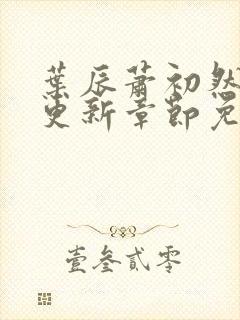 葉辰蕭初然
更新章節免
壹叁貳零